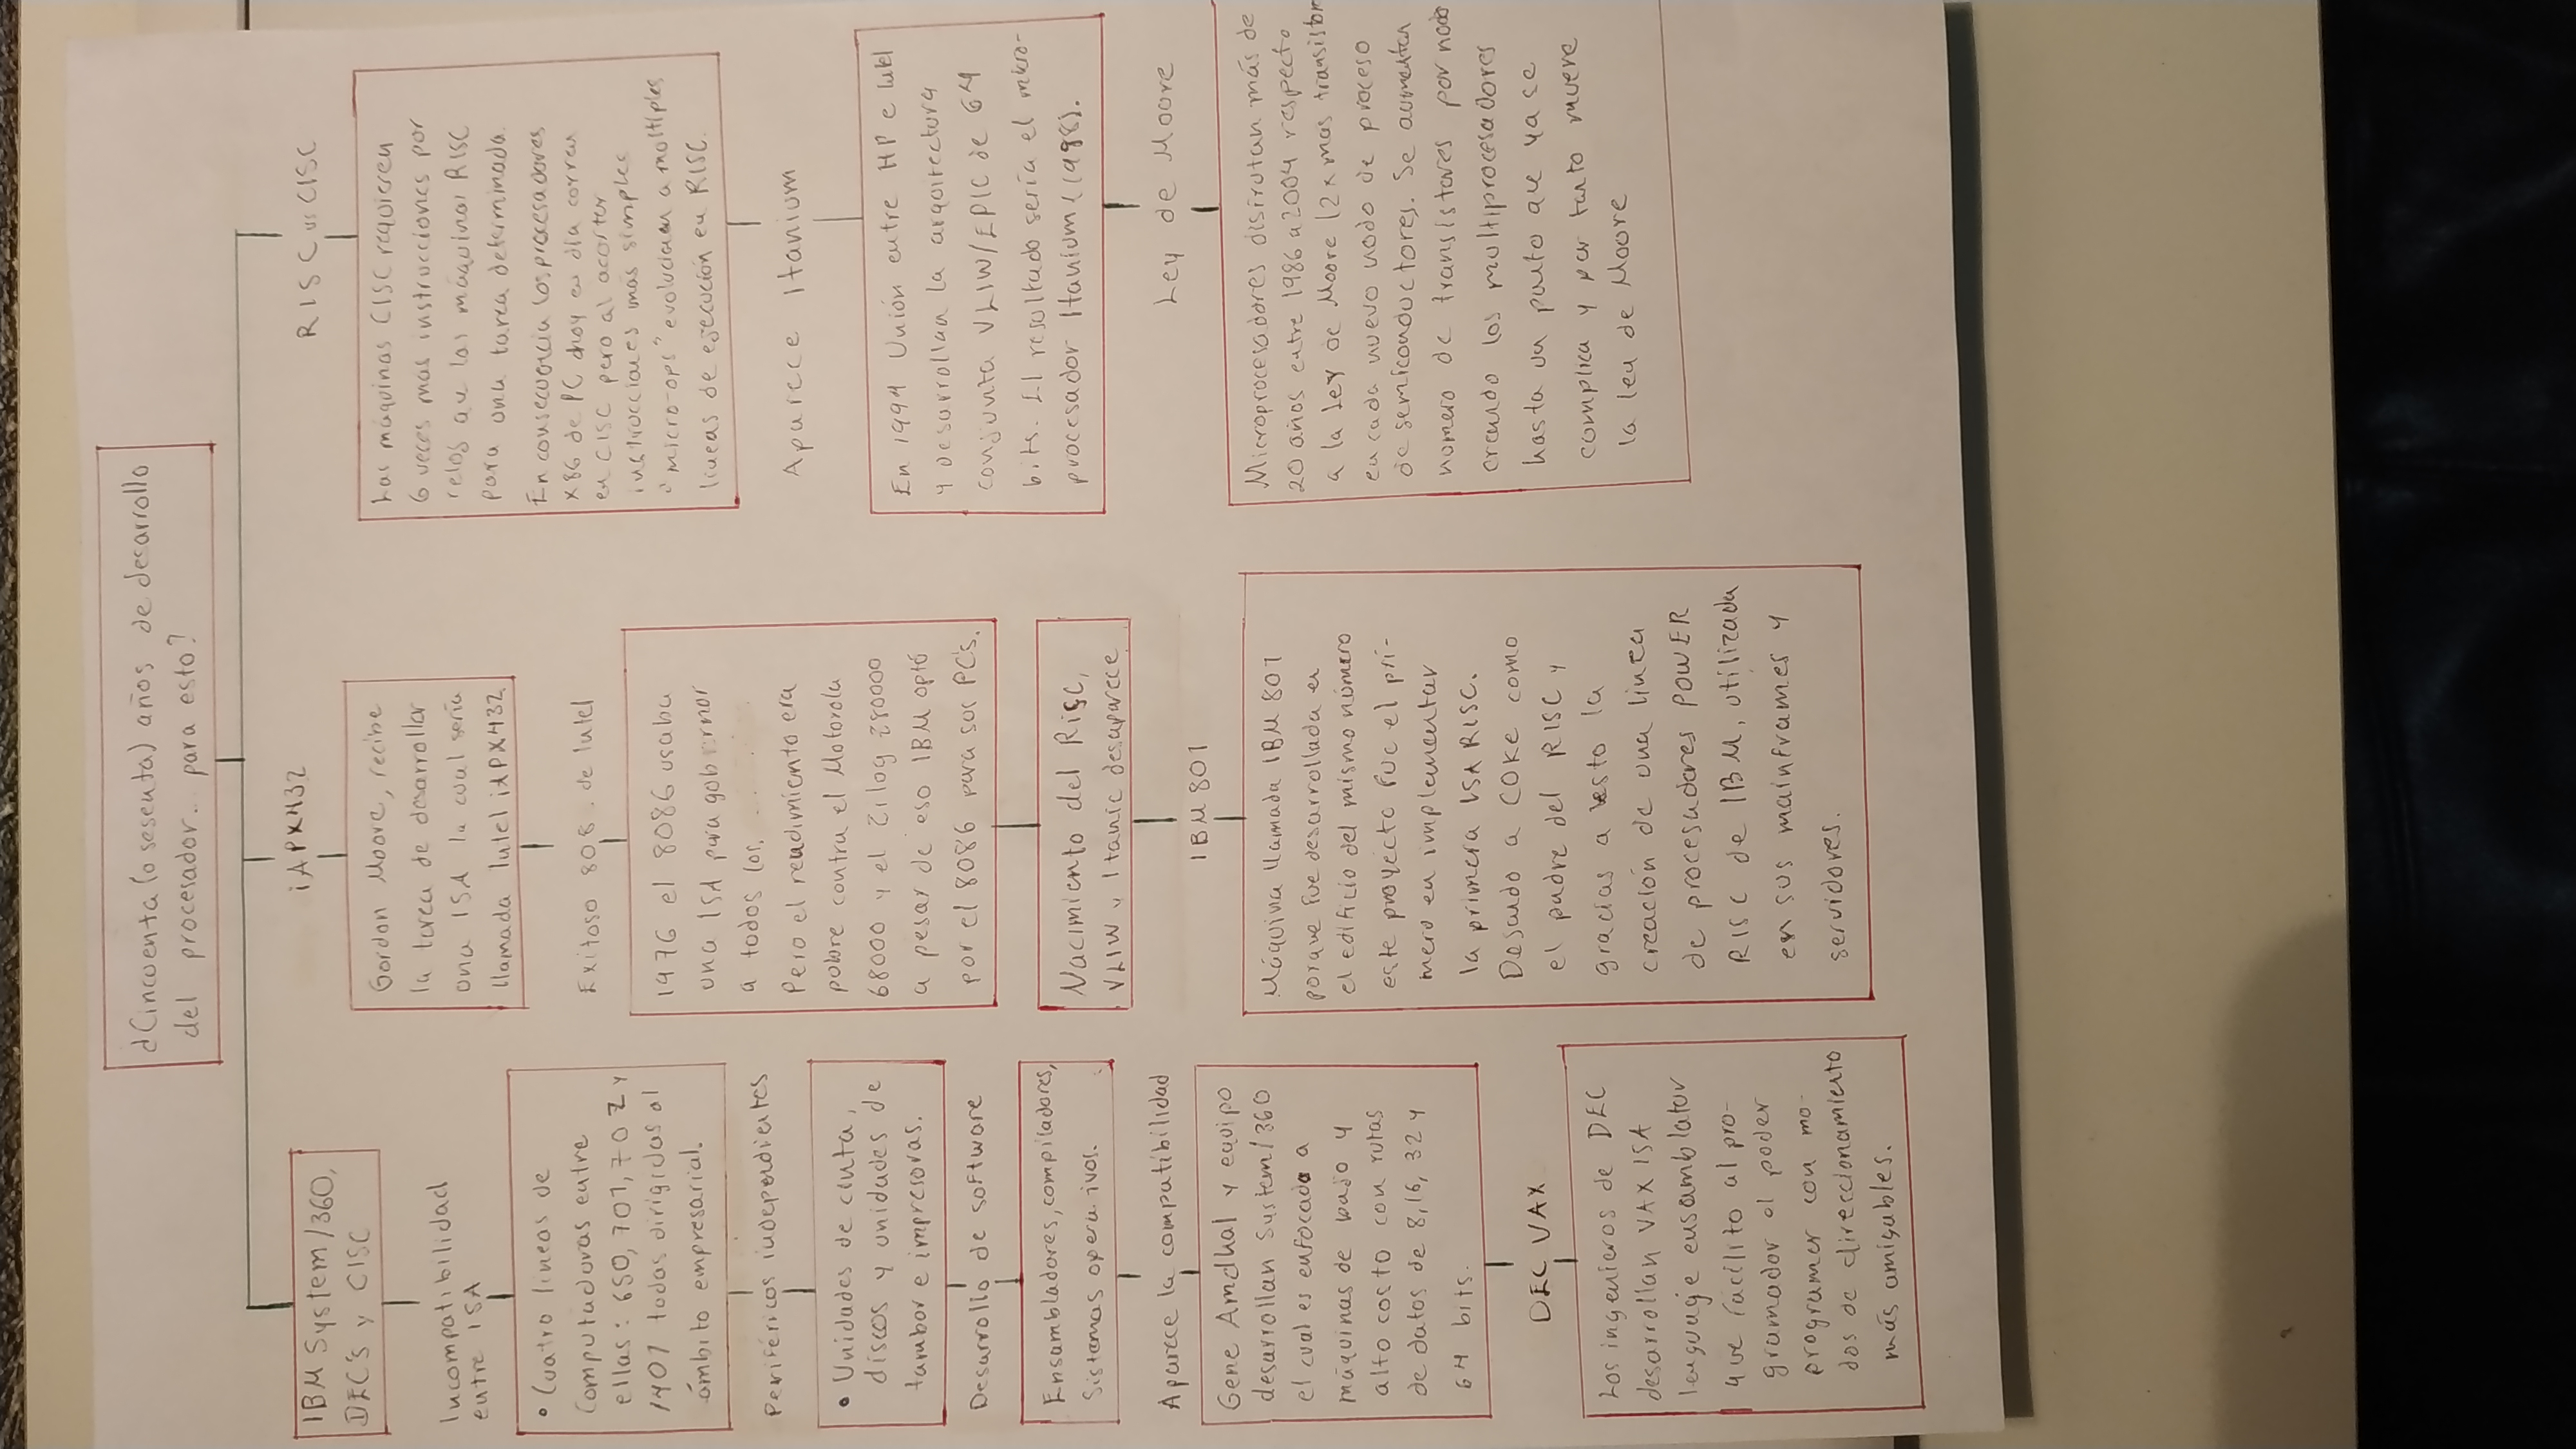 ¿Cincuenta (o sesenta) años de desarrollo
del procesador.. para esto?
IBM System/360,
DEC's y CISC
Incompatibilidad
entre ISA
• Cuatro lineas de
computadoras entre
ellas: 650, 701, 702 y
1401 todas dirigidas al
ámbito empresarial.
Periféricos independientes
• Unidades de cinta,
discos y unidades de
tambor e impresoras.
Desarrollo de software
Ensambladores, compiladores,
Sistemas opera ivos.
Aparece la compatibilidad
Gene Amdhal y equipo
desarrollan System/360
el cual es enfocado a
máquinas de bajo y
alto costo con rutas
de datos de 8, 16, 32 y
64 bits.
DEC VAX
Los ingenieros de DEC
desarrollan VAX ISA
lenguaje ensamblator
que facilito al pro-
gramador al poder
programar con mo-
dos de direccionamiento
más amigables.
iAPX432
Gordon Moore, recibe
la tarea de desarrollar
una ISA la cual sería
llamada Intel iAPX432
Exitoso 808 . de Intel
1976 el 8086 usaba
una ISA para gobernar
a todos los.
Pero el rendimiento era
pobre contra el Motorola
68000 y el Zilog Z80000
a pesar de eso IBM optó
por el 8086 para sus PC's.
Nacimiento del Risc,
VLIW y Itanic desaparece
IBM 801
Máquina llamada IBM 801
porque fue desarrollada en
el edificio del mismo número
este proyecto fue el pri-
mero en implementar
la primera ISA RISC.
Desando a COKE como
el padre del RISC y
gracias a esto la
creación de una linea
de procesadores POWER
RISC de IBM, utilizada
en sus mainframes y
servidores.
RISC vs CISC
Las máquinas CISC requieren
6 veces mas instrucciones por
reloj que las máquinas RISC
para una tarea determinada.
En consecuencia los procesadores
x86 de PC de hoy en día corren
en CISC pero al acortar
instrucciones más simples
"micro-ops" evolucionan a multiples
lineas de ejecución en RISC.
Aparece Itanium
En 1994 Unión entre HP e Intel
y desarrollan la arquitectura
conjunta VLIW/EPIC de 64
bits. El resultado sería el micro-
procesador Itanium (1998).
Ley de Moore
Microprocesadores disfrutan más de
20 años entre 1986 a 2004 respecto
a la Ley de Moore (2x mas transistor
en cada nuevo nodo de proceso
de semiconductores. Se aumentan
numero de transistores por nodo
creando los multiprocesadores
hasta un punto que ya se
complica y por tanto muere
la ley de Moore